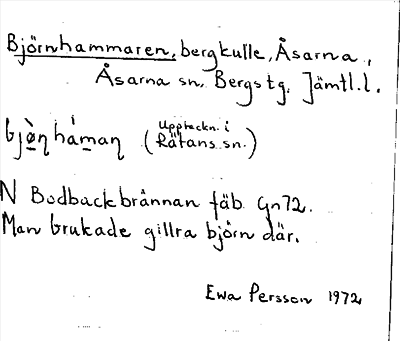 Björnhammaren, bergkulle, Åsarna,
Åsarna sn. Bergs tg. Jämtl.l.
bjø̀ṇháman (Uppteckn. i
Rätans sn.)
N Bodbackbrännan fäb. Gn72.
Man brukade gillra björn där.
Ewa Persson 1972